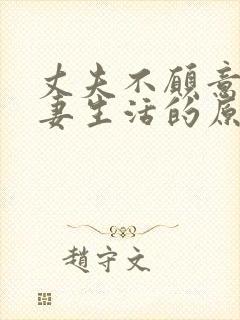 丈夫不願意
妻生活的原
趙守文